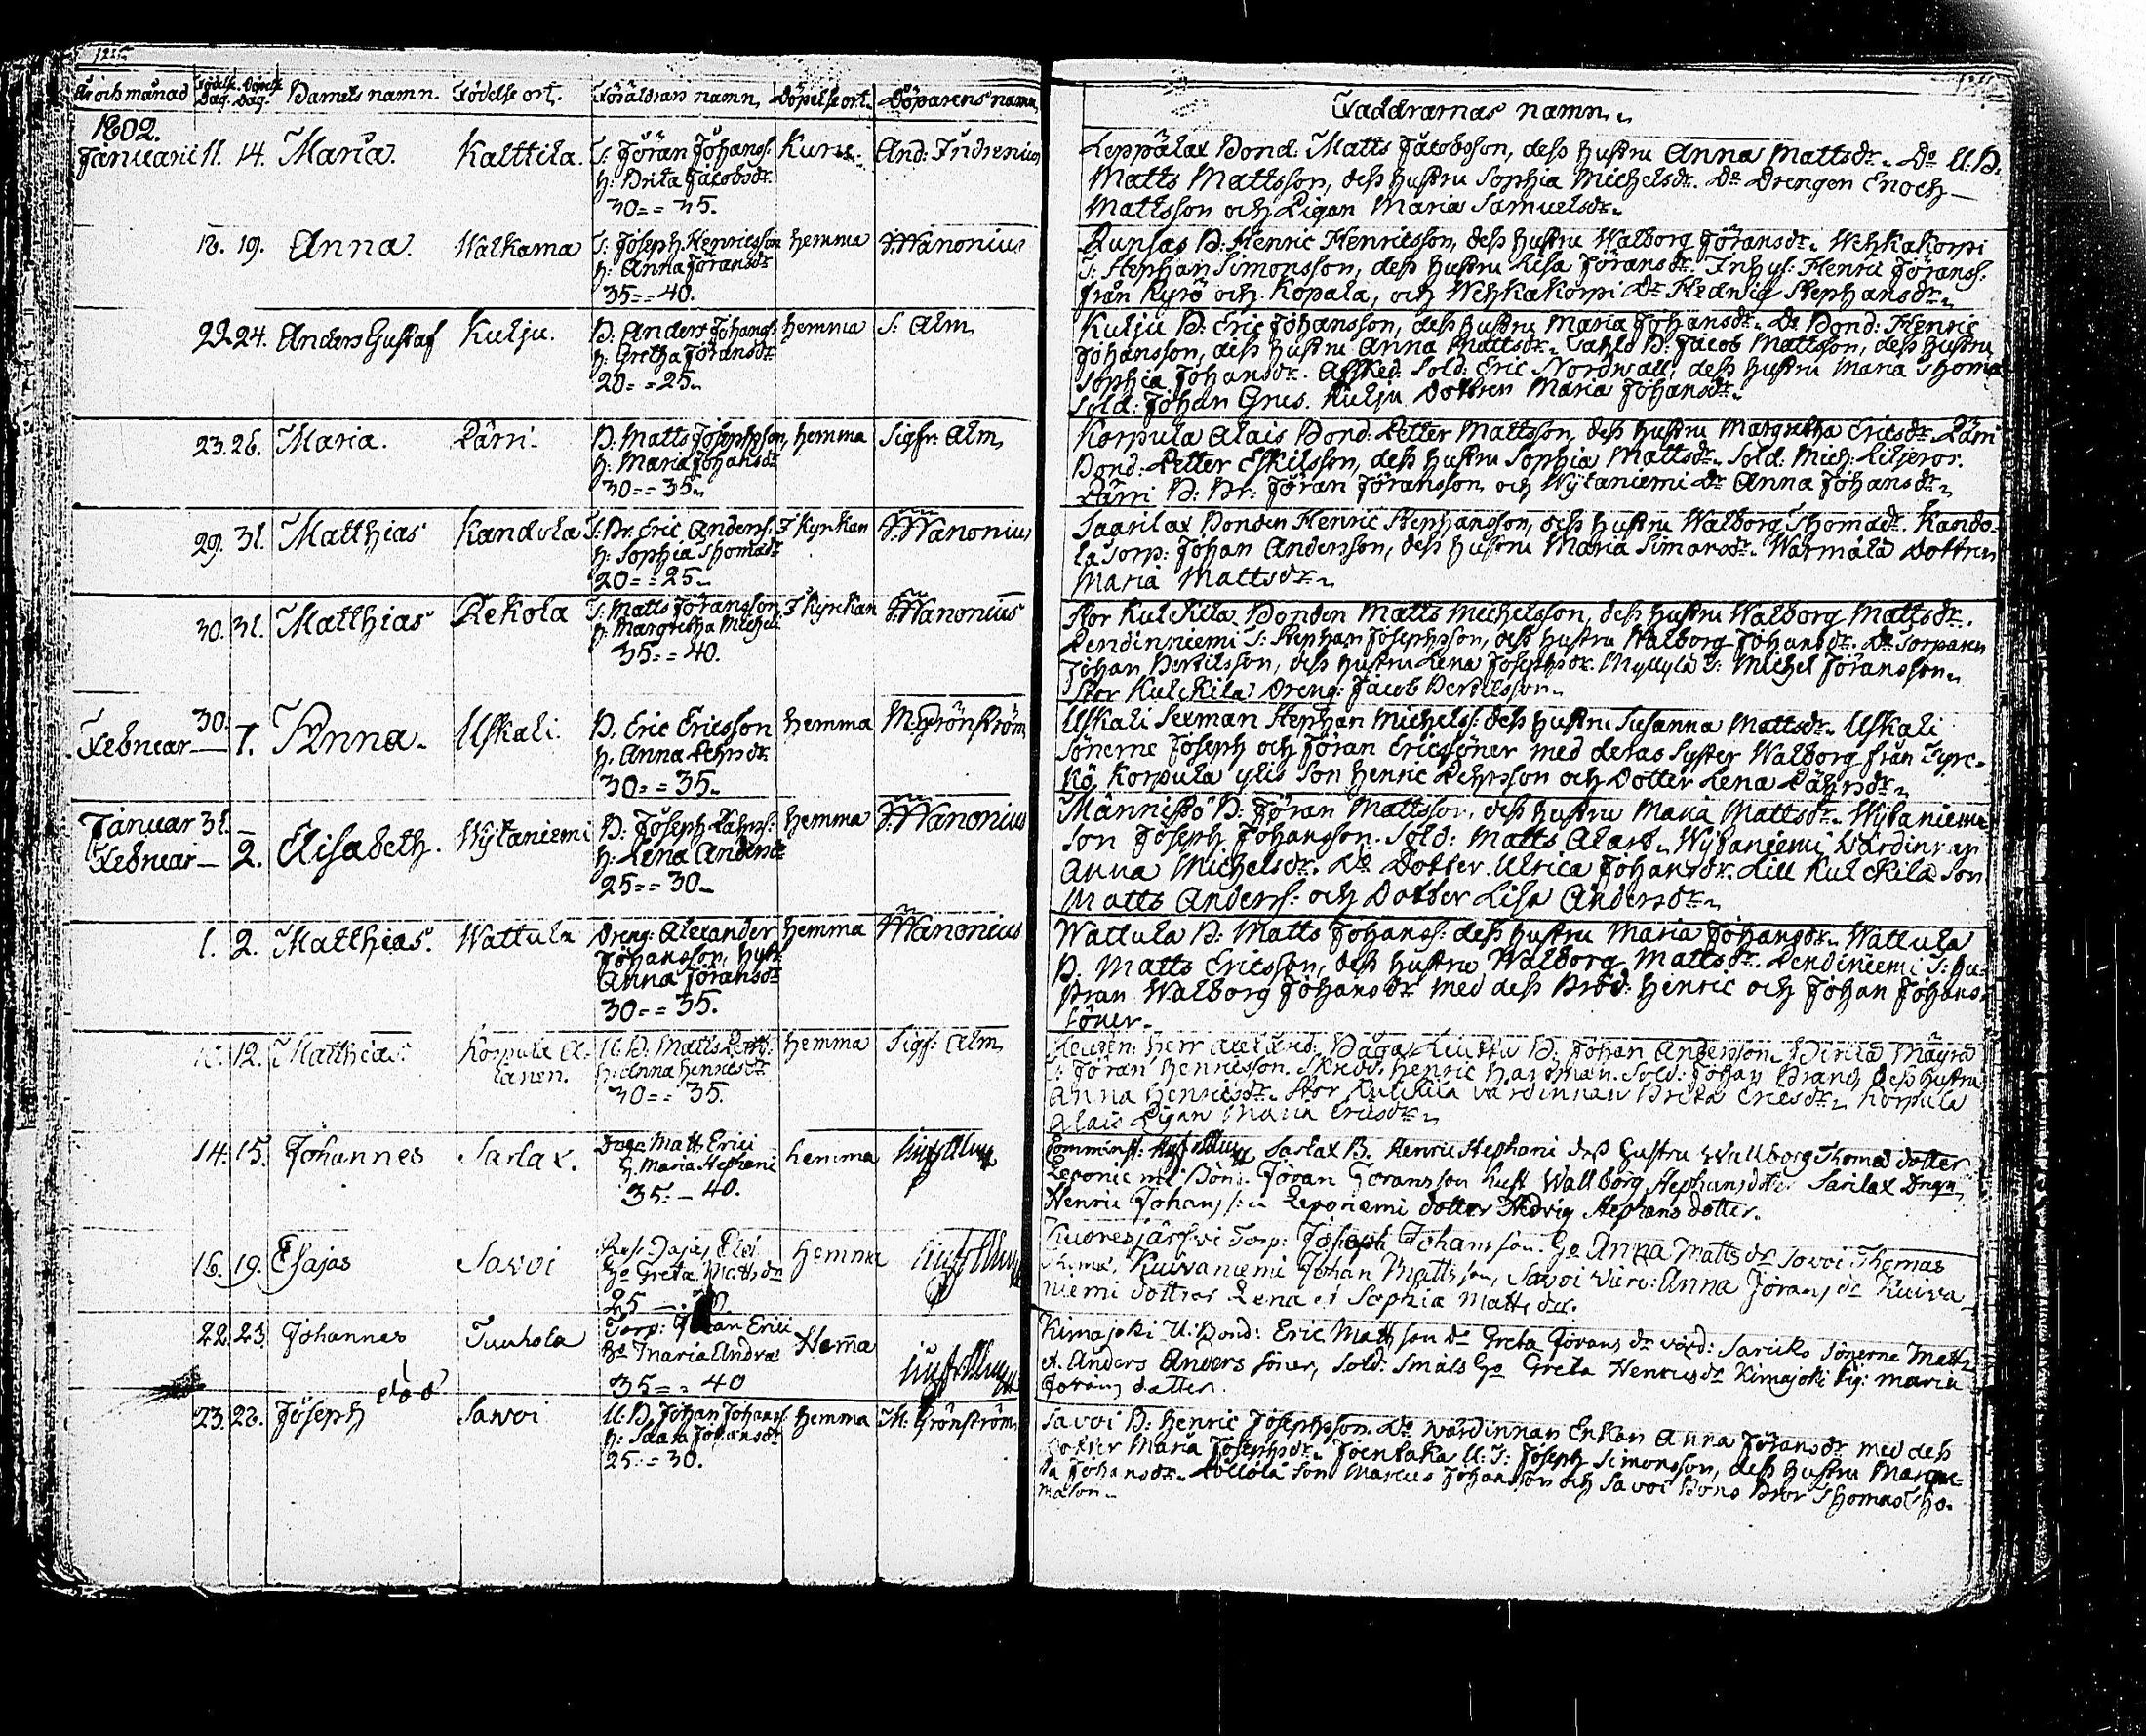 År och månad Födelse Dag. Döpelse Dag. Barnets namn. Födelse ort. Föräldrars namn, Döpelse ort. Döparens namn
1802.
Januarii 11. 14. Maria. Kalttila. T: Jöran Johanss: Kuru. And: Indrenius
h: Brita Jacobsdr.
30 = = 35.
18. 19. Anna. Walkama T: Joseph Henricsson hemma Wanonius
h: Anna Göransdr
35 = = 40.
22. 24. Anders Gustaf Kulju. B: Anders Johanss: hemma S: Alm
h: Gretha Jöransdr
20 = = 25.
23. 26. Maria. Pärri. B: Matts Josephsson, hemma Sigfr: Alm
h: Maria Johansdr
30 = = 35.
29. 31. Matthias Kandola T: Br: Eric Anderss: I Kyrkan Wanonius
h: Sophia Thomædr
20 = = 25.
30. 31. Matthias Rekola T: Matts Jöransson I Kyrckan Wanonius
h: Margretha Michels
35 = = 40.
30.
Februar — 1. Anna. Uskali. B. Eric Ericsson hemma M: Grönström
h. Anna Pehrsdr
30 = = 35.
Januar 31. —
Februar — 2. Elisabeth. Wytaniemi B: Joseph Pährs: hemma Wanonius
h: Lena Andersdr
25 = = 30.
1. 2. Matthias. Wattula Dreng: Alexander hemma Wanonius
Johansson, hust
Anna Jöransdr
30 = = 35.
12. Matthias. Korpula A- U: B: Matts hemma Sigf: Alm
lanen. h: Anna Henricsdr
30 = = 35.
14. 15. Johannes Sarlax. Drgn Matt. Erici hemma
h. Maria Stephani
35. – 40.
16. 19. Esajas Savoi hemma
Ho Greta Mattsdr
25
22. 23. Johannes Tuuhola Torp: Johan Erici Hemma
Ho Maria Andræ
35 = = 40
död
23. 28. Joseph Savoi U: B. Johan Johanss hemma M: Grönström
h: Saara Johansdr
25 = = 30.
Faddrarnas namn.
Leppälax Bond: Matts Jacobsson, dess hustru Anna Mattsdr. Do U: B:
Matts Mattsson, dess hustru Sophia Michelsdr. Do Drengen Enoch
Mattsson och Pigan Maria Samuelsdr.
Runsas B: Henric Henricsson, dess hustru Walborg Jöransdr. Wehkakorpi
T: Stephan Simonsson, dess hustru Lisa Jöransdr. Inhys: Henric Jöranss:
från Kyrö och Kopala, och Wehkakorpi Dr Hedwig Stephansdr.
Kulju B: Eric Johansson, dess hustru Maria Johansdr. Do Bond: Henric
Johansson, dess hustru Anna Mattsdr. B: Jacob Mattsson, dess hustru
Sophia Johansdr. Afsked: Sold: Eric Nordwall, dess hustru Maria Thomæ
Sold: Johan Grus. Kulju Dottren Maria Johansdr.
Korpula Alais Bond: Petter Mattsson, dess hustru Margretha Ericsdr. Pärri
Bond: Petter Eskilsson, dess hustru Sophia Mattsdr. Sold: Mich: Liljeros.
Pärri B: Br: Jöran Jöransson och Wytaniemi Dr Anna Johansdr.
Saarilax Bonden Henric Stephansson, dess hustru Walborg Thomædr. Kando-
la Torp: Johan Andersson, dess hustru Maria Simonsdr. Warmala Dottren
Maria Mattsdr.
Stor Kulckila Bonden Matts Michelsson, dess hustru Walborg Mattsdr.
Lendinniemi T: Stephan Josephsson, dess hustru Walborg Johansdr. Do Torparen
Johan Bertilsson, dess hustru Lena Josephsdr. Myllylä T: Michel Jöransson.
Stor Kulckila Dreng: Jacob Bertilsson.
Uskali Sexman Stephan Michelss: dess hustru Susanna Mattsdr. Uskali
Sönerne Joseph och Jöran Ericssöner med deras Syster Walborg från Tyrc-
kö, Korpula ylis Son Henric Pehrsson och Dotter Lena Pährsdr.
Männistö B: Jöran Mattsson, dess hustru Maria Mattsdr. Wytaniemi
Son Joseph Johansson. Sold: Matts Alard. Wytaniemi Värdinnan
Anna Michelsdr. Do Dotter Ulrica Johansdr. Lill Kulckila Son
Matts Anderss: och Dotter Lisa Andersdr.
Wattula B: Matts Johanss: dess hustru Maria Johansdr. Wattula
B. Matts Ericsson, dess hustru Walborg Mattsdr. Lendiniemi T: hu-
stran Walborg Johansdr med dess Bröd: Henric och Johan Johans-
söner.
Herr B: Johan Andersson.
T: Jöran Henricsson. Henric Hartman. Sold: Johan Brand, dess hustru
Anna Henricsdr. Stor Kulckila värdinnan Brita Ericsdr. Korpula
Alais Pigan Maria Ericsdr.
Comminist: Sarlax B. Henric Stephani dess Hustru Wallborg Thomæ dotter
Leponiemi Bond. Jöran Göransson hust Wallborg Stephans doter Sarilax Drgn
Henric Johans Leponemi dotter Hedvig Stephans dotter.
Kuoresjärfvi Torp: Joseph Johansson. Ho Anna Mattsdr Savoi Thomas
Thomæ, Kuivaniemi Johan Mattsson, Savoi värd: Anna Jörans dr Kuiva-
niemi dottrar Lena et Sophia Matts dtr.
Kimajoki U: Bond: Eric Mathson Greta Jörans dr värd: Sariko Sönerne Matts
et. Anders Anders söner, Sold: Smals Ho Greta Henricsdr Kimajoki Pig: Maria
Jörans datter.
Savoi B: Henric Josephsson. Do Wärdinnan Enkan Anna Jöransdr med dess
Dotter Maria Josephsdr. Joentaka U: T: Joseph Simonsson, dess hustru Margre-
ta Johansdr. Son Marcus Johansson och Savoi Bond Bror Thomas Tho-
mæson.